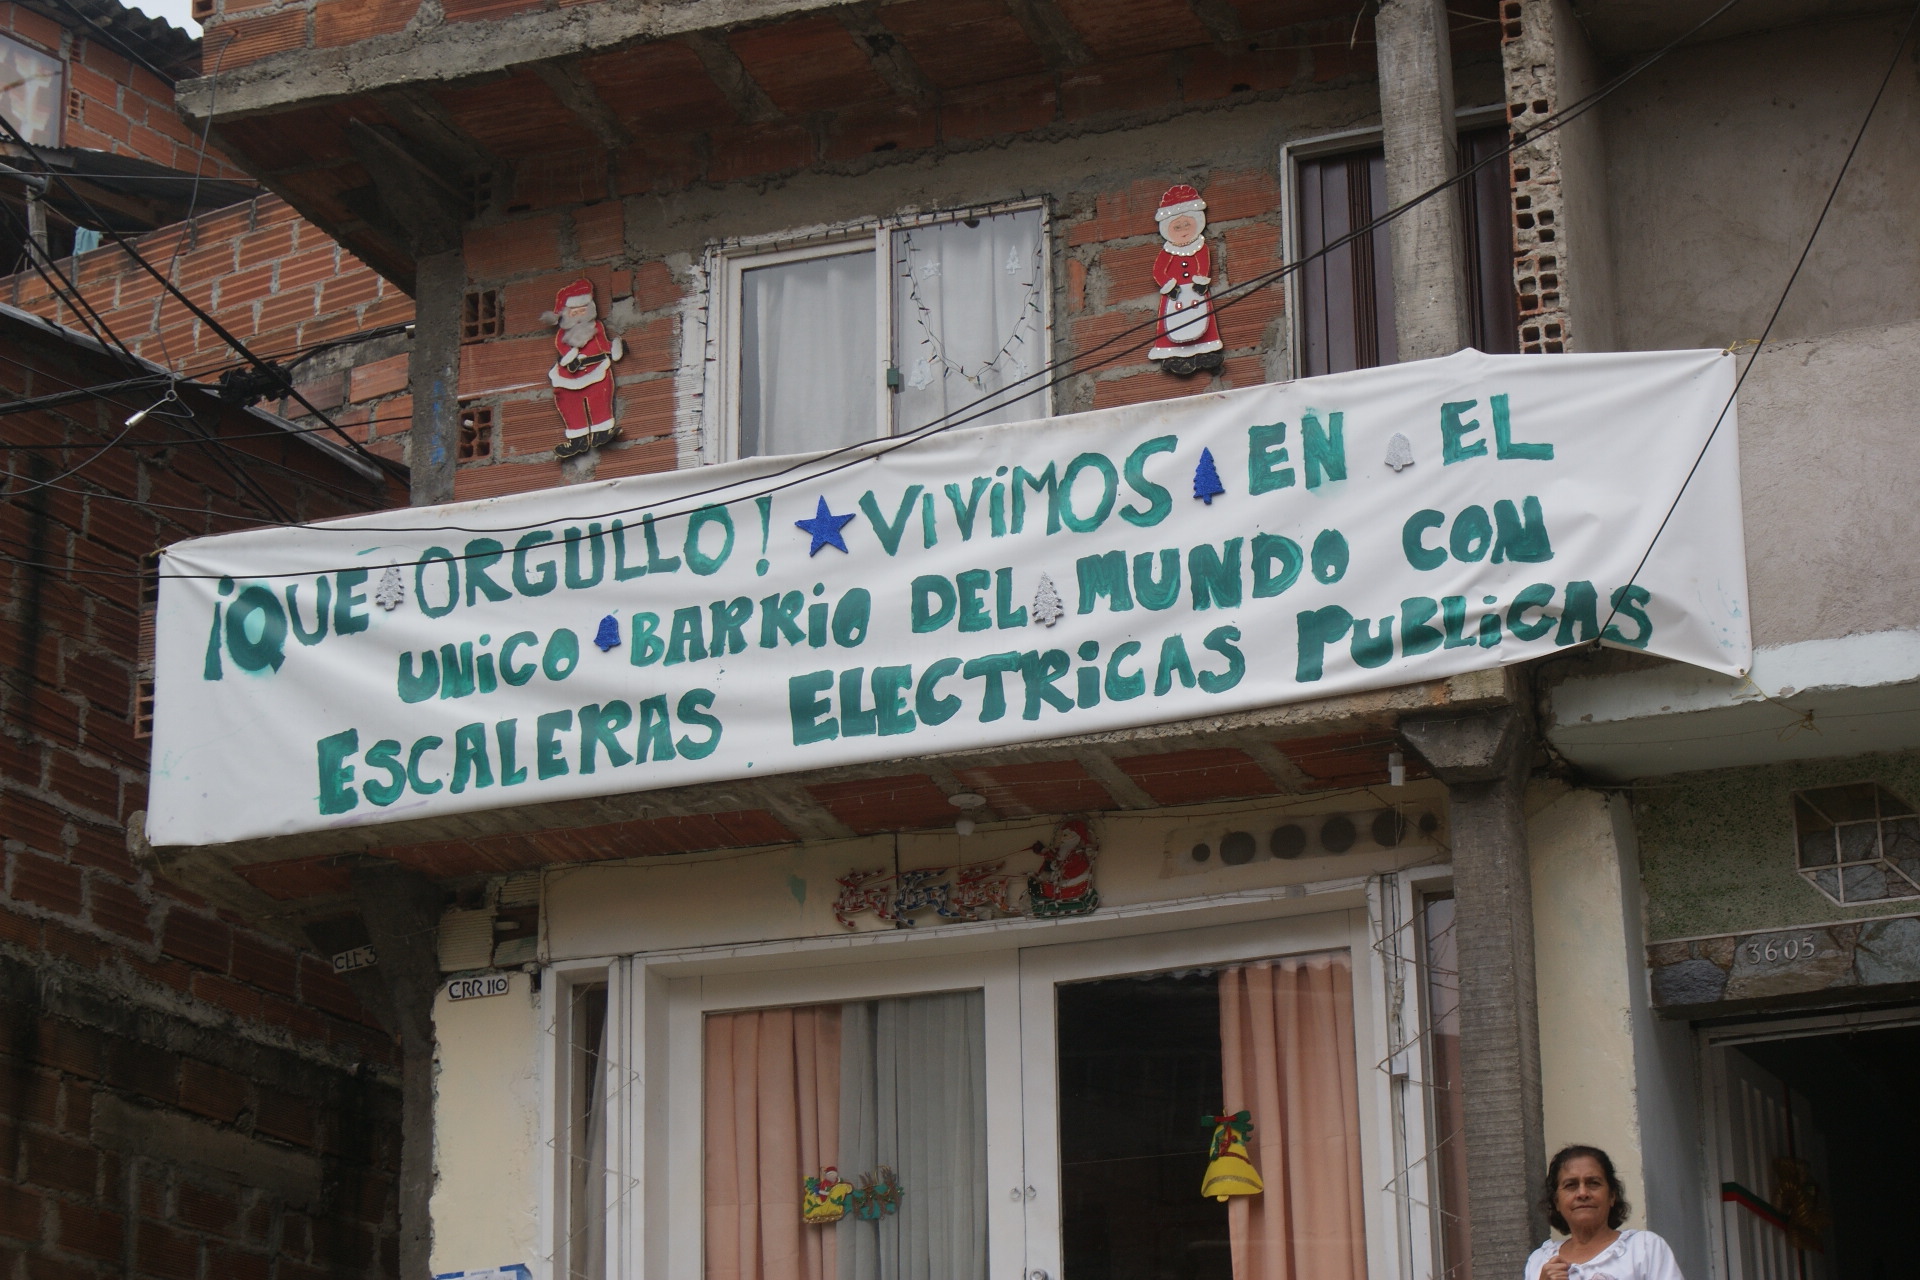 ¡QUE ORGULLO! VIVIMOS EN EL
UNiCO BARRiO DEL MUNDO CON
ESCALERAS ELECTRiCAS PUBLiCAS
CLE 3
CRR 110
3605